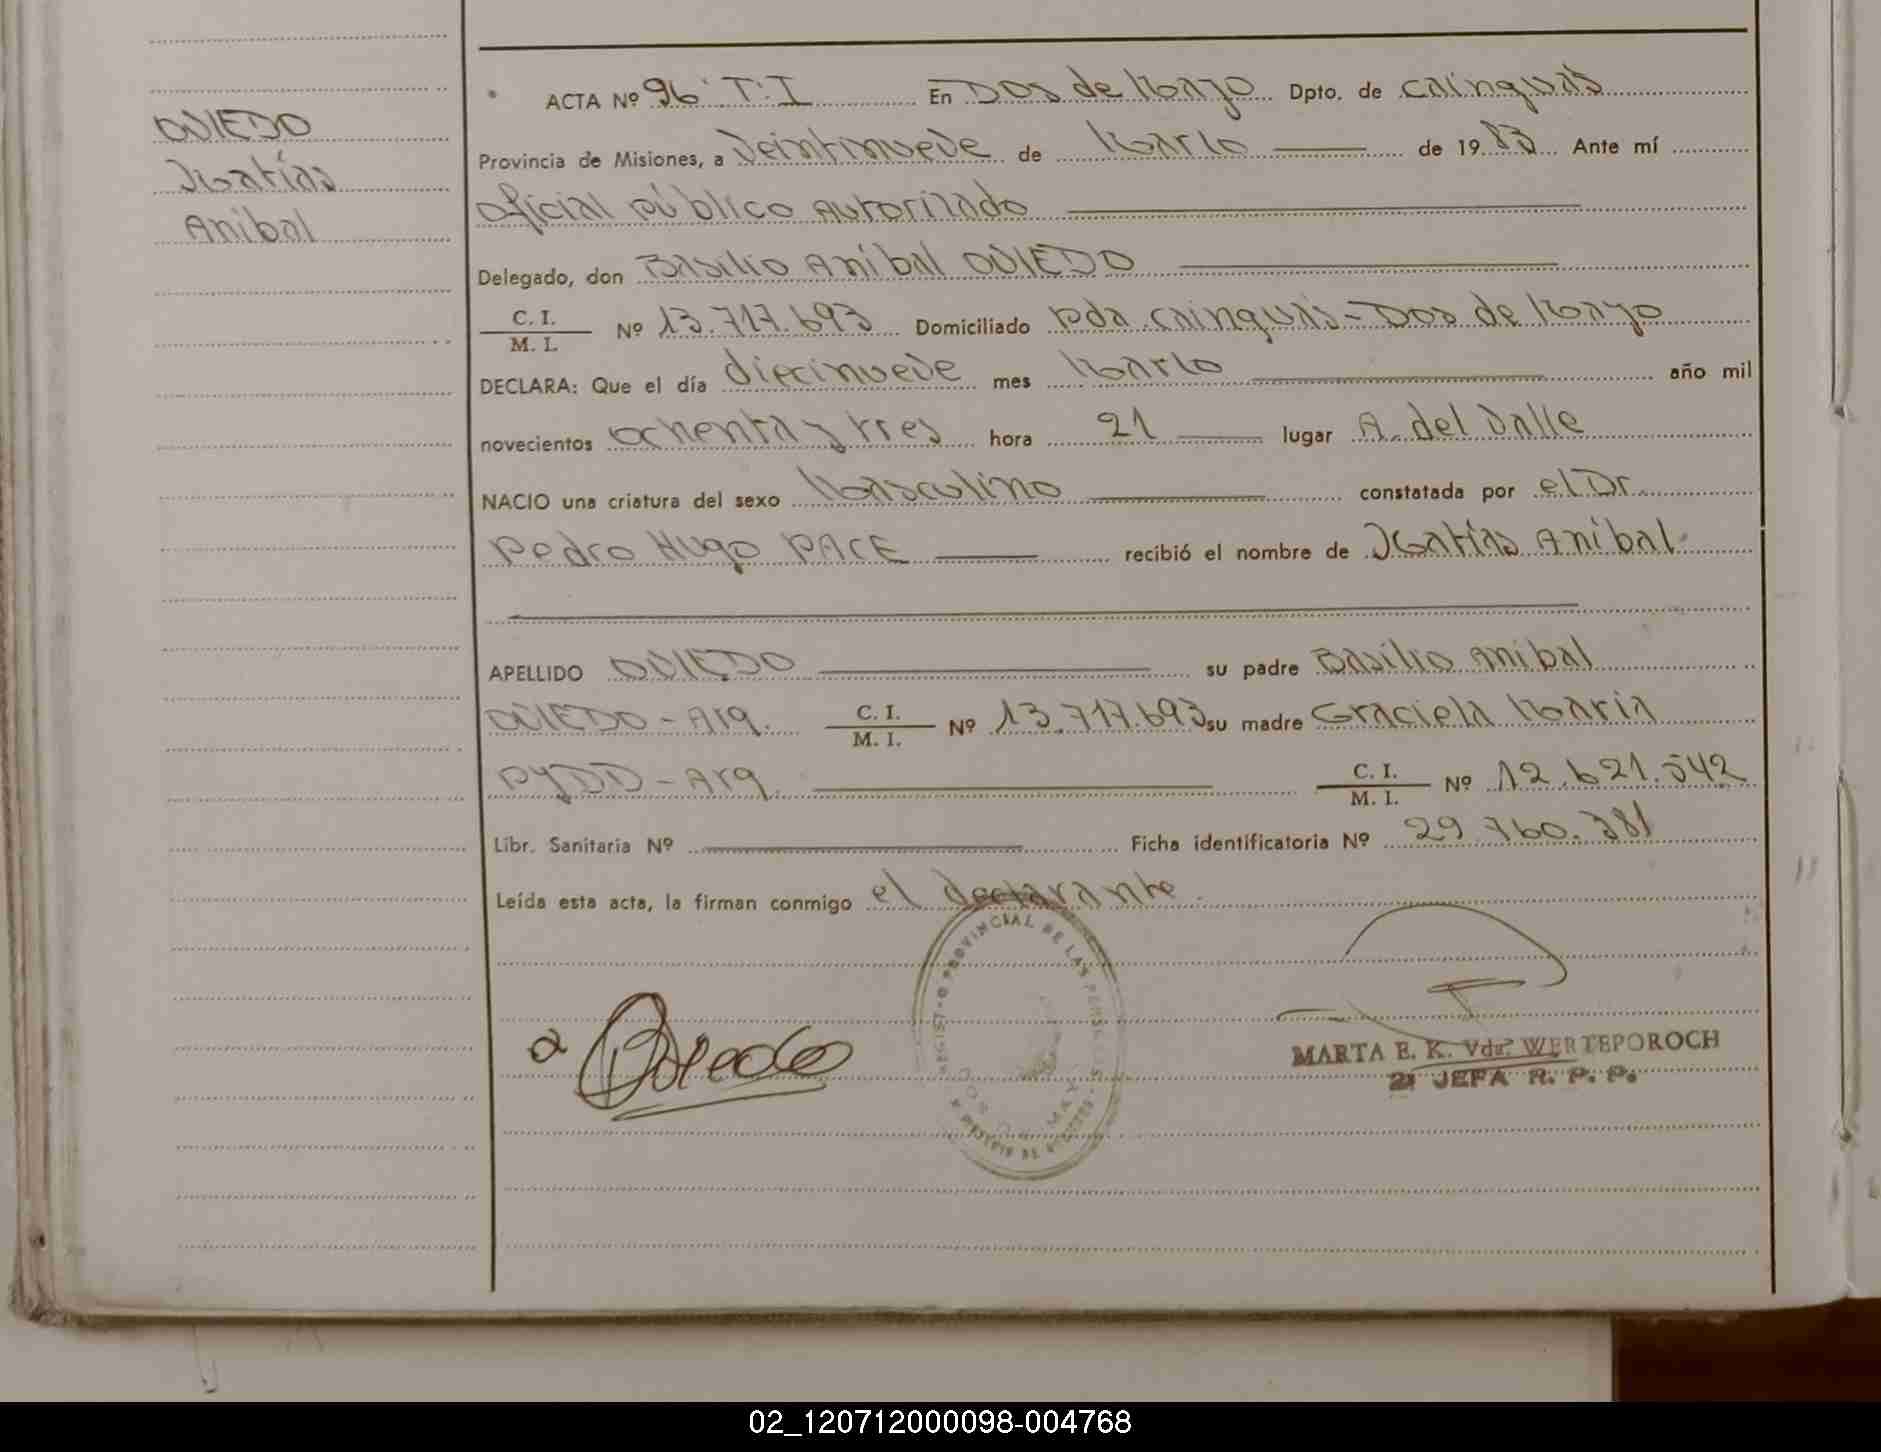 OVIEDO
Matías
Anibal
ACTA Nº 96 T:I En Dos de Mayo Dpto. de Cainguás
Provincia de Misiones, a Veintinueve de Marzo de 1983 Ante mí
Oficial público Autorizado
Delegado, don Basilio Anibal OVIEDO
C. I.
M. I. Nº 13.717.693 Domiciliado Pda Cainguás - Dos de Mayo
DECLARA: Que el día diecinueve mes Marzo año mil
novecientos ochenta y tres hora 21 lugar A. del Valle
NACIO una criatura del sexo Masculino constatada por el Dr.
Pedro Hugo PACE recibió el nombre de Matías Anibal
APELLIDO OVIEDO su padre Basilio Anibal
OVIEDO - Arg. C. I.
M. I. Nº 13.717.693 su madre Graciela Maria
PYDD - Arg. C. I.
M. I. Nº 12.621.542
Libr. Sanitaria Nº Ficha identificatoria Nº 29.760.381
Leída esta acta, la firman conmigo el declarante.
REGISTRO PROVINCIAL DE LAS PERSONAS
DOS DE MAYO
Oviedo
MARTA E. K. Vda. WERTEPOROCH
2ª JEFA R. P. P.
02_120712000098-004768